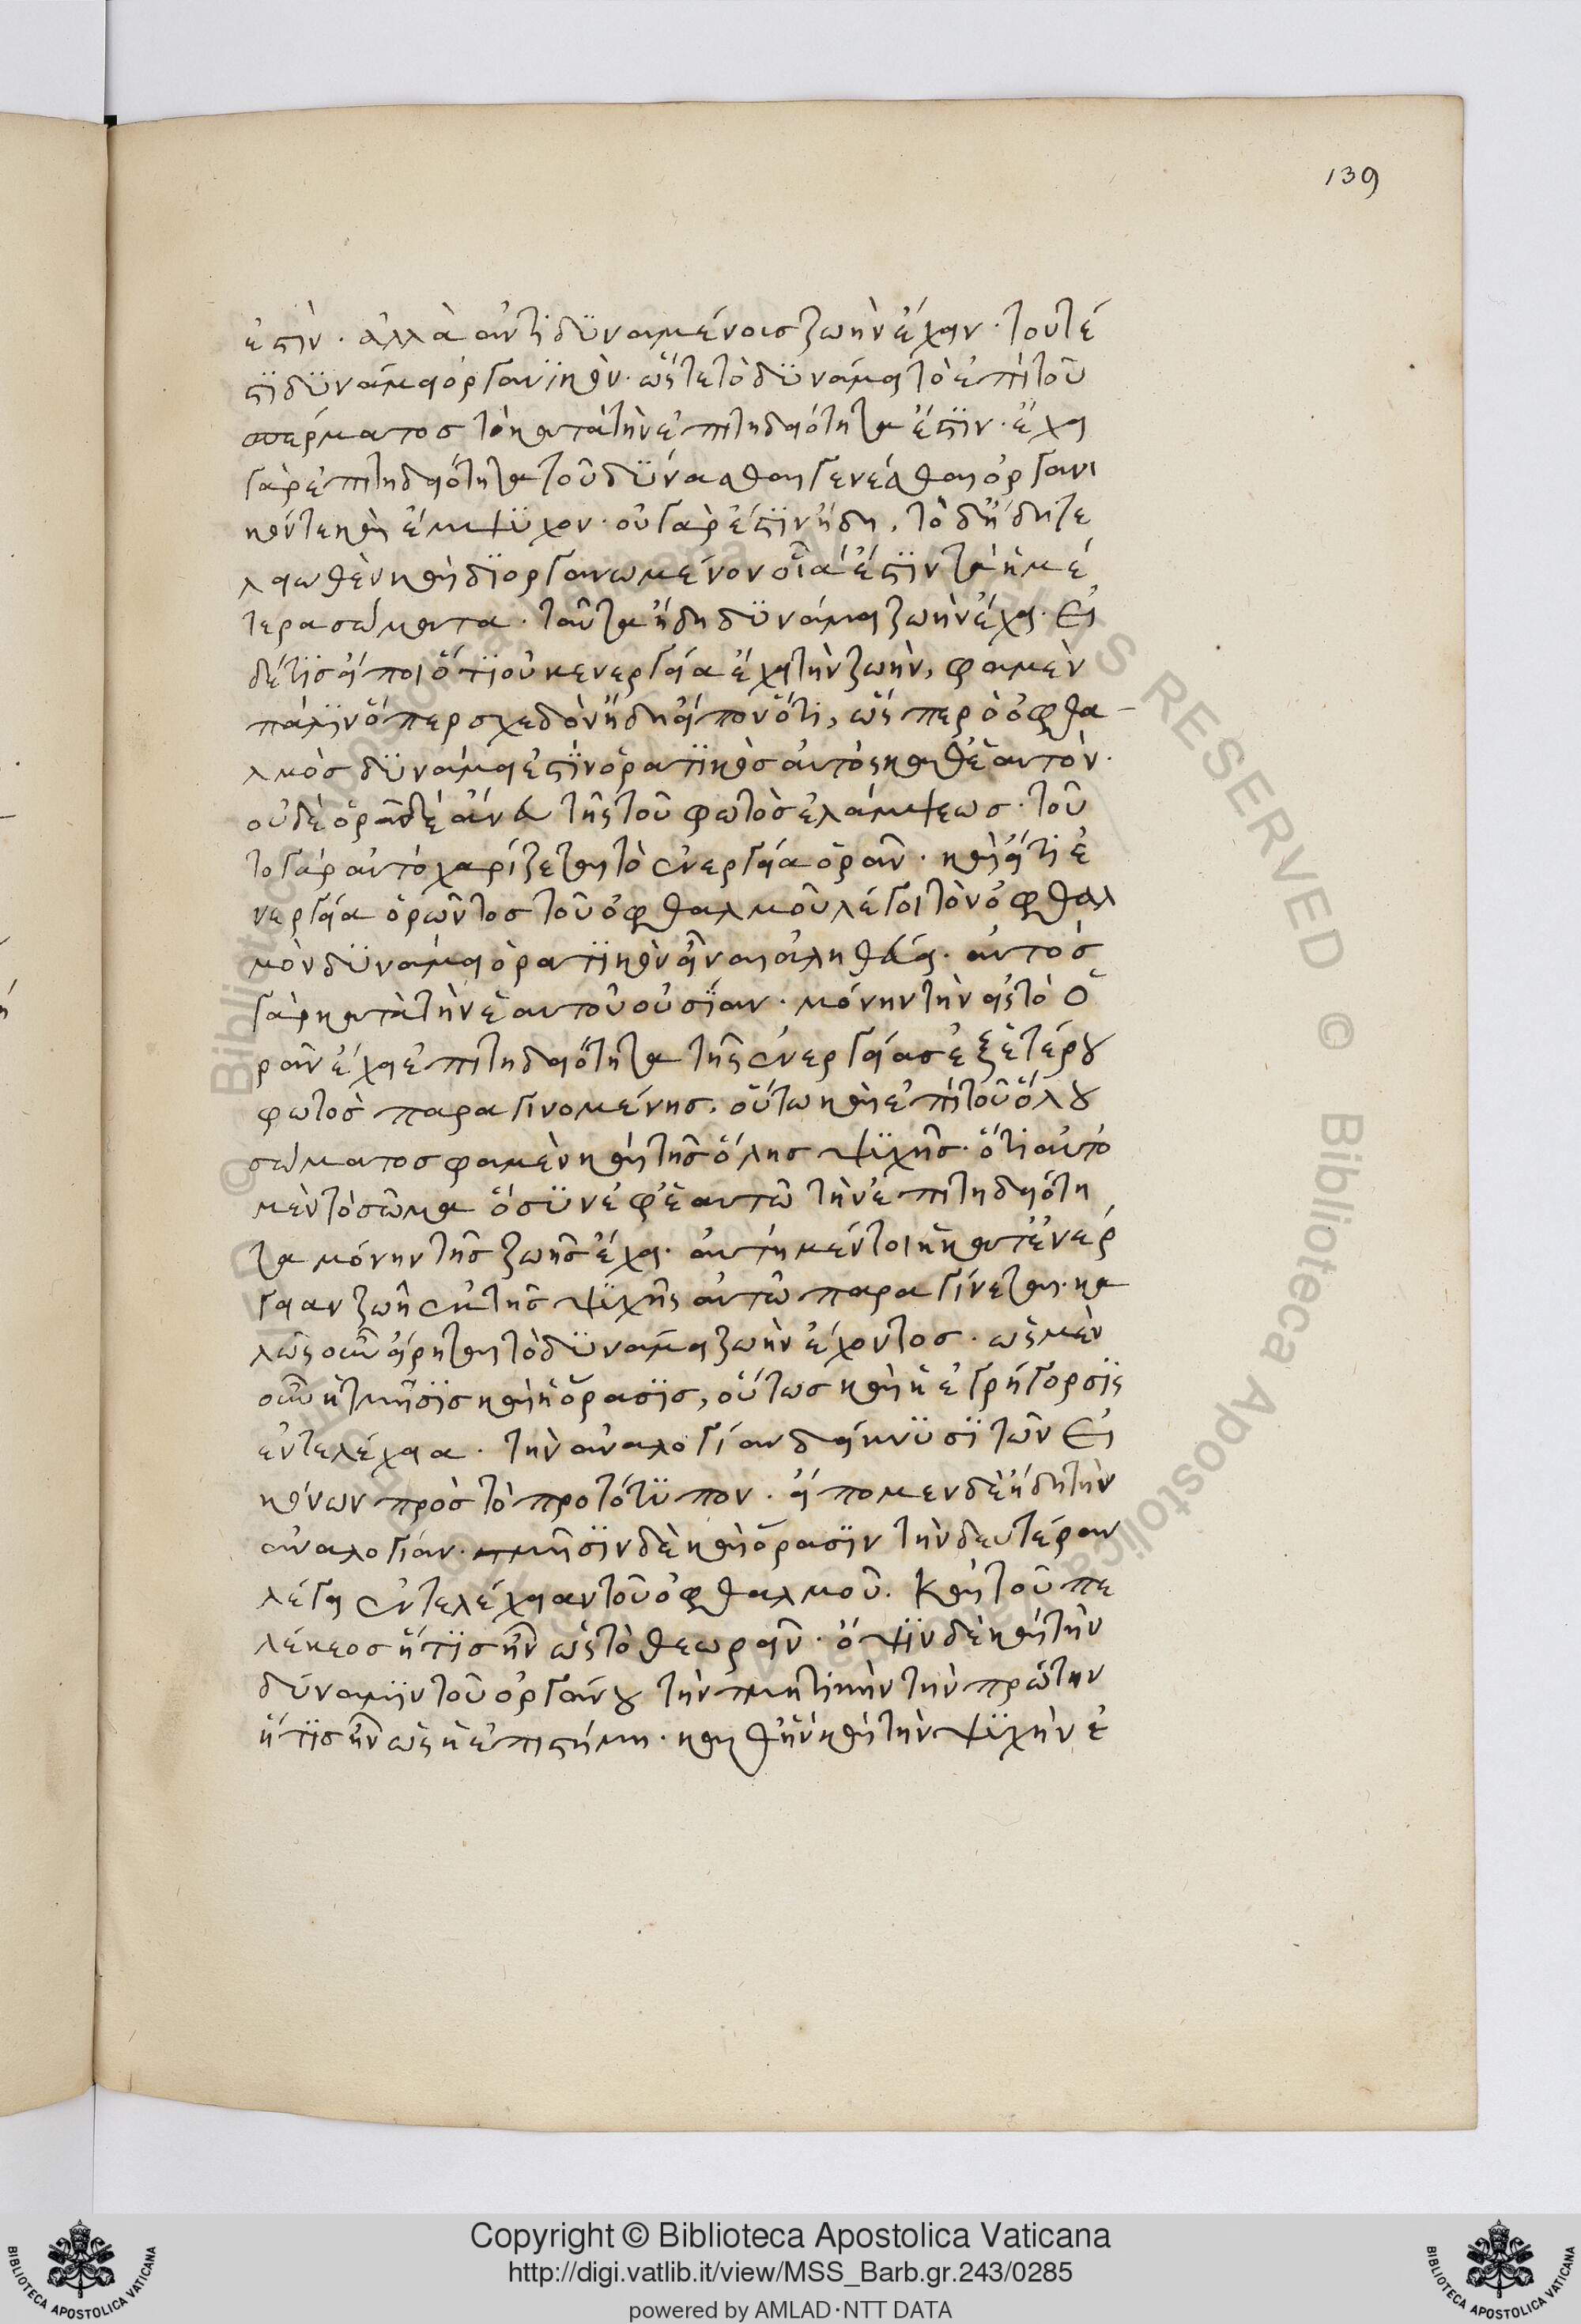 139
ἐστὶν. ἀλλὰ ἀντὶ δϋναμένοισ ζωὴν ἔχειν. τουτέ
στϊ δϋνάμει ὀργανϊκὸν. ὥστε τὸ δϋνάμει τὸ ἐπὶ τοῦ
σπέρματοσ τὸ κατὰ τὴν ἐπιτηδειότητα ἐστϊν. ἔχει
γὰρ ἐπιτηδειότητα τοῦ δϋνασθαι γενέσθαι ὀργανι
κόν τε καὶ ἔμψϋχον. οὐ γὰρ ἐστϊν ἤδη. τὸ δ' ἤδη τε
λειωθὲν καὶ δϊοργανωμένον οἷα ἐστϊν τὰ ἡμέ
τερα σώματα. ταῦτα ἤδη δϋνάμει ζωὴν ἔχει. Εἰ
δέ τϊσ εἴποι ὅτϊ οὐκ ἐνεργεία ἔχει τὴν ζωὴν, φαμὲν
πάλϊν ὅπερ σχεδὸν ἤδη εἴπον ὅτι, ὥσπερ ὁ ὀφθα
λμὸσ δϋνάμει ἐστϊν ὁρατϊκὸσ αὐτὸς καθ' ἑαυτὸν.
οὐδὲ ὁρᾶ δὲ ἄνευ τῆς τοῦ φωτὸσ ἐλάμψεωσ. τοῦ
το γὰρ αὐτὸ χαρίζεται τὸ ἐνεργεία ὁρᾶν. καὶ εἴ τι ἐ
νεργεία ὁρῶντοσ τοῦ ὀφθαλμοῦ λέγοι τὸν ὀφθαλ
μὸν δϋνάμει ὁρατϊκὸν εἶναι ἀληθεύει. αὐτὸσ
γὰρ κατὰ τὴν ἑαυτοῦ οὐσϊαν. μόνην τὴν εἰς τὸ ὁ
ρᾶν ἔχει ἐπιτηδειότητα τῆς ἐνεργείασ ἐξ ἑτέρου
φωτὸσ παραγινομένησ. οὕτω καὶ ἐπὶ τοῦ ὅλου
σώματοσ φαμὲν καὶ τῆσ ὅλησ ψϋχῆσ. ὅτι αὐτὸ
μὲν τὸ σῶμα ὅσϋν ἐφ' ἑαυτῶ τὴν ἐπιτηδειότη
τα μόνην τῆσ ζωῆσ ἔχει. αὐτὴ μέντοι ἡ κατ' ἐνέρ
γειαν ζωὴ ἐκ τῆσ ψϋχῆς αὐτῶ παραγίνεται. κα
λῶς οὖν εἴρηται τὸ δϋνάμει ζωὴν ἔχοντοσ. ὡς μὲν
οὖν ἡ τμῆσϊσ καὶ ἡ ὅρασϊσ, οὕτωσ καὶ ἡ ἐγρήγορσϊς
ἐντελέχεια. τὴν ἀναλογίαν δείκνϋσϊ τῶν Εἰ
κόνων πρὸσ τὸ προτότϋπον. εἴπομεν δὲ ἤδη τὴν
ἀναλογίαν. τμῆσϊν δὲ καὶ ὅρασϊν τὴν δευτέραν
λέγει ἐντελέχειαν τοῦ ὀφθαλμοῦ. Καὶ τοῦ πε
λέκεοσ ἥτϊσ ἦν ὡς τὸ θεωρεῖν. ὄψϊν δὲ καὶ τὴν
δύναμϊν τοῦ ὀργάνου τὴν τμητικὴν τὴν πρώτην
ἥτϊσ ἦν ὡς ἡ ἐπιστήμη. καθ' ἣν καὶ τὴν ψϋχὴν ἐ
Copyright © Biblioteca Apostolica Vaticana
http://digi.vatlib.it/view/MSS_Barb.gr.243/0285
powered by AMLAD·NTT DATA